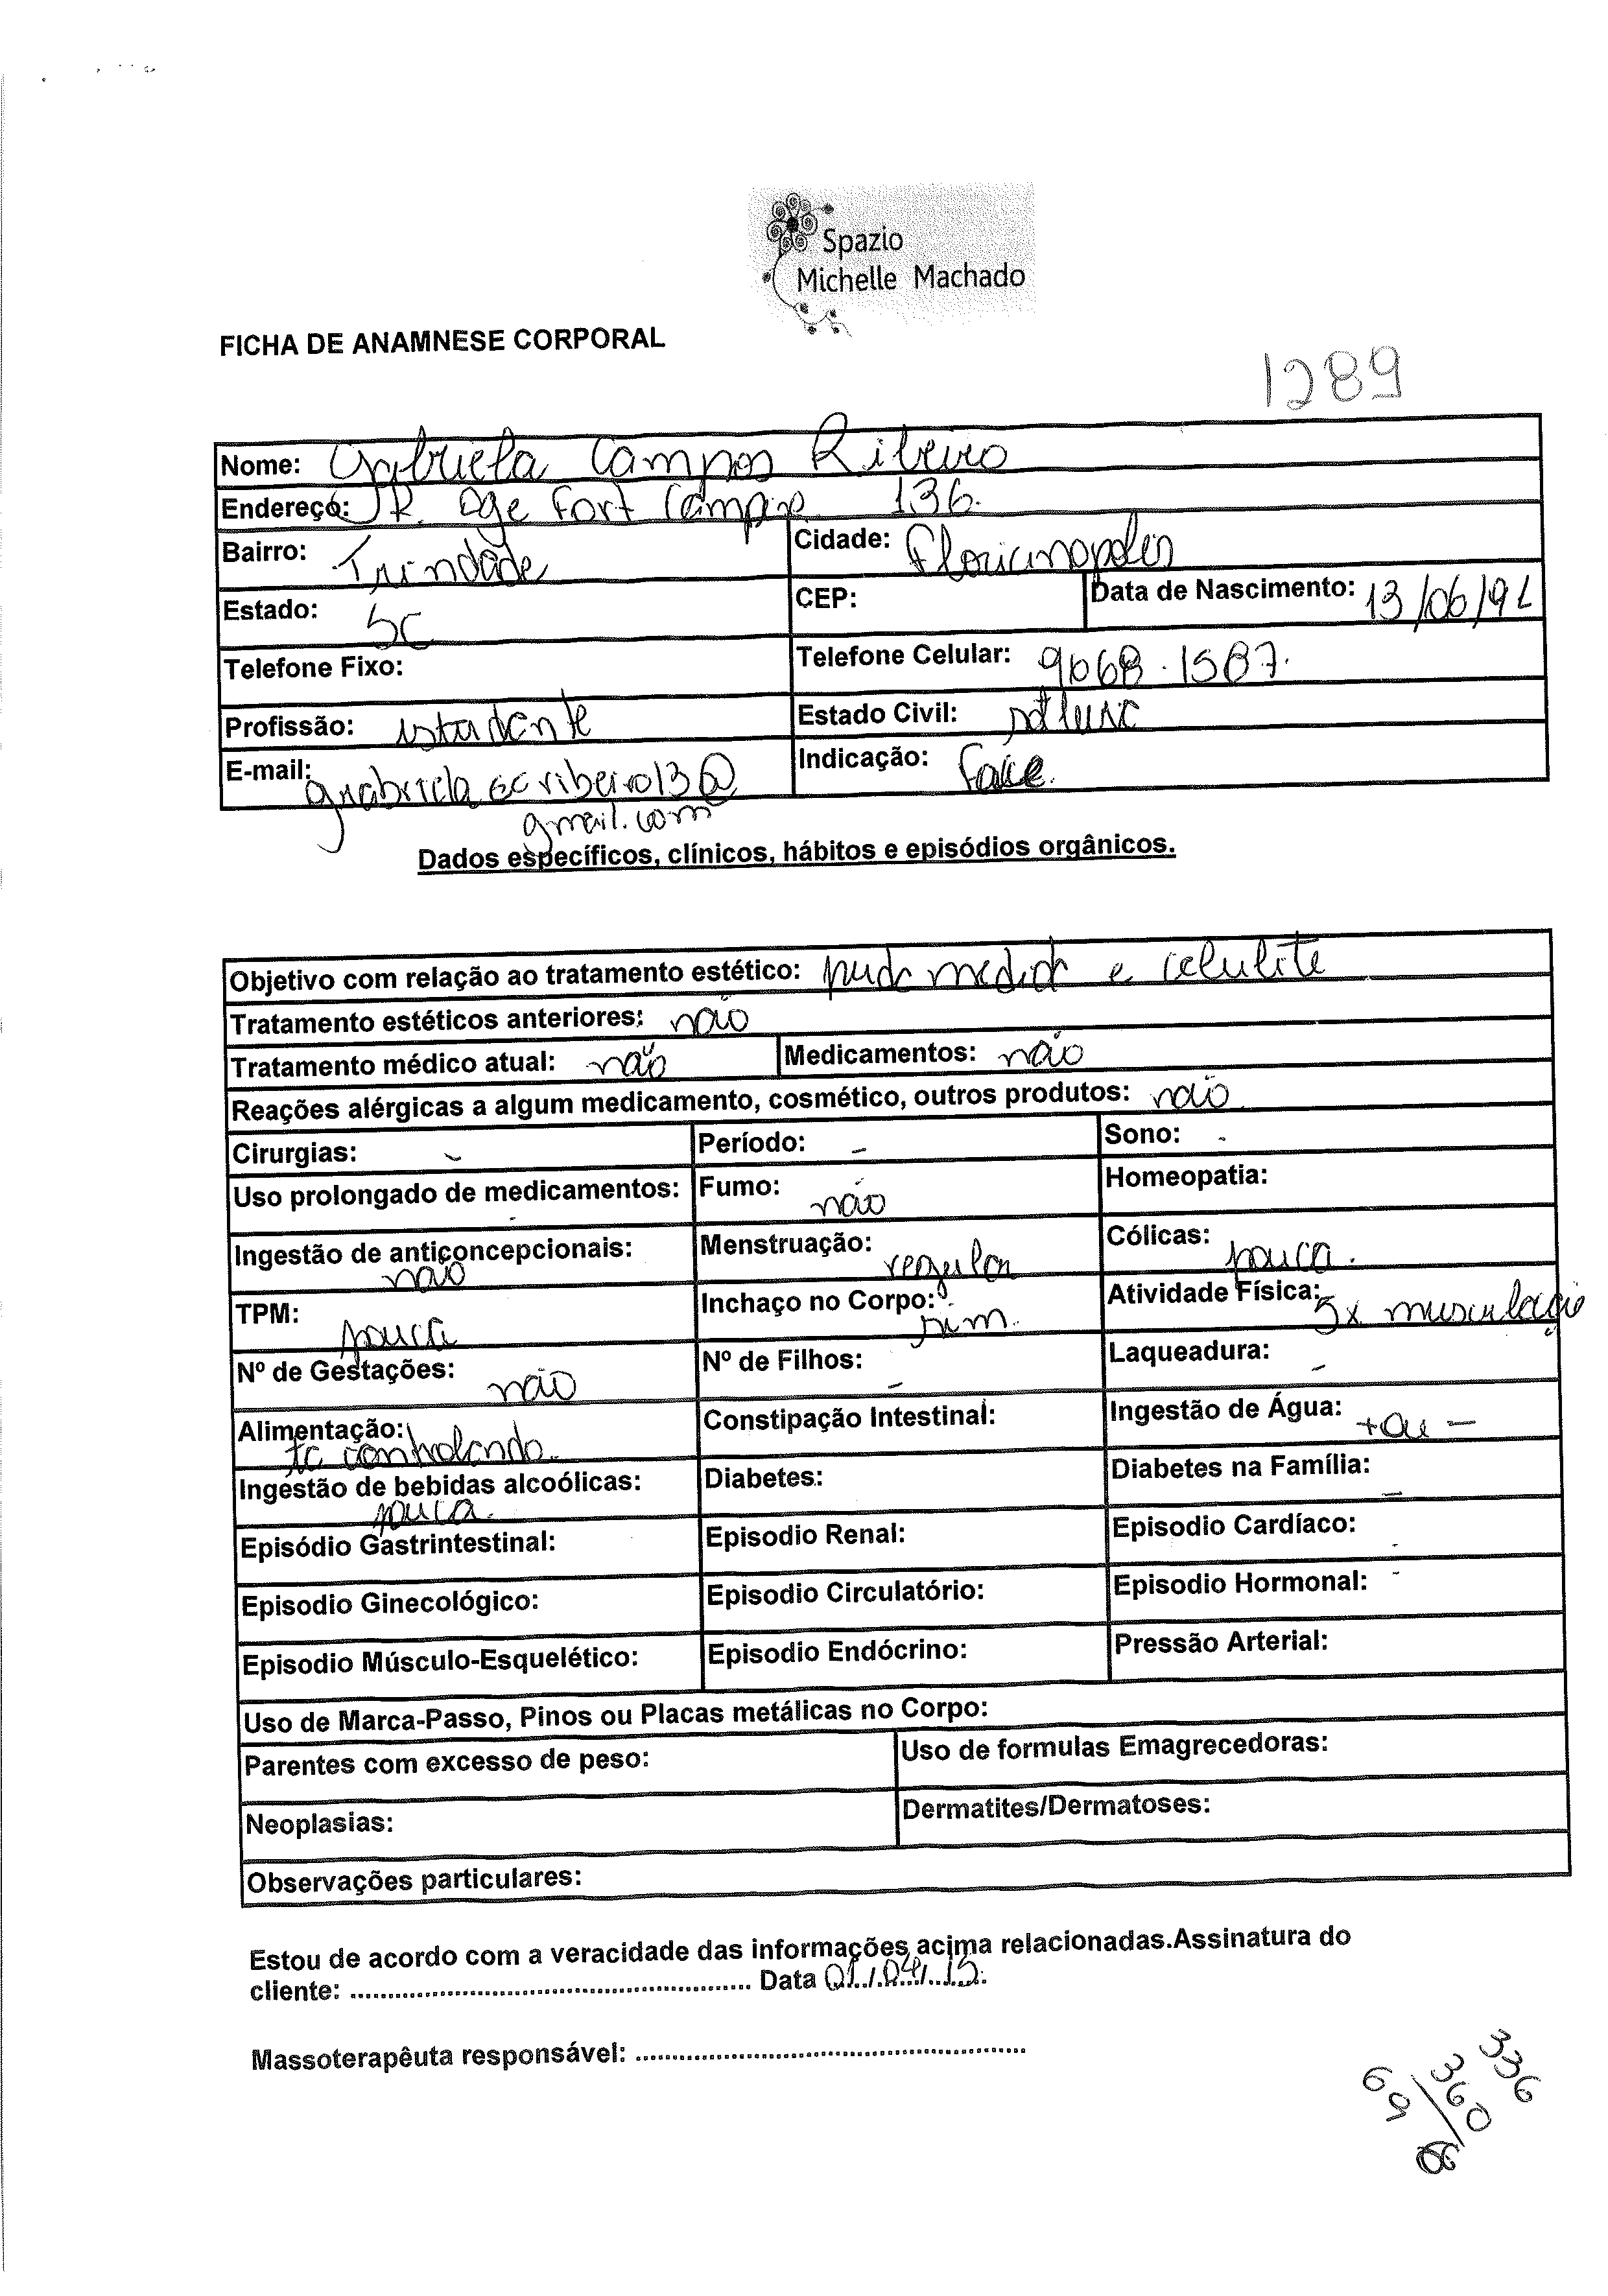 Spazio
Michelle Machado
FICHA DE ANAMNESE CORPORAL
1289
Nome: Gabriela Campos Ribeiro
Endereço: R. Oge Fort 136.
Bairro: Trindade Cidade: Florianopolis
Estado: SC CEP: Data de Nascimento: 13/06/91
Telefone Fixo: Telefone Celular: 9668.1587.
Profissão: estudante Estado Civil: solteira
E-mail: Indicação: Face.
gmail.com
Dados específicos, clínicos, hábitos e episódios orgânicos.
Objetivo com relação ao tratamento estético: medida e celulite
Tratamento estéticos anteriores: não
Tratamento médico atual: não Medicamentos: não
Reações alérgicas a algum medicamento, cosmético, outros produtos: não
Cirurgias: - Período: - Sono: -
Uso prolongado de medicamentos: - Fumo: não Homeopatia:
Ingestão de anticoncepcionais: não Menstruação: regular Cólicas: pouca.
TPM: pouca Inchaço no Corpo: sim. Atividade Física: 5x musculação
Nº de Gestações: não Nº de Filhos: - Laqueadura: -
Alimentação: ta controlando. Constipação Intestinal: Ingestão de Água: + ou -
Ingestão de bebidas alcoólicas: pouca. Diabetes: Diabetes na Família: -
Episódio Gastrintestinal: Episodio Renal: Episodio Cardíaco: -
Episodio Ginecológico: Episodio Circulatório: Episodio Hormonal: -
Episodio Músculo-Esquelético: Episodio Endócrino: Pressão Arterial:
Uso de Marca-Passo, Pinos ou Placas metálicas no Corpo:
Parentes com excesso de peso: Uso de formulas Emagrecedoras:
Neoplasias: Dermatites/Dermatoses:
Observações particulares:
Estou de acordo com a veracidade das informações acima relacionadas.Assinatura do
cliente: ..................................................... Data 01/04/15.
Massoterapêuta responsável: ....................................................
336
360
69